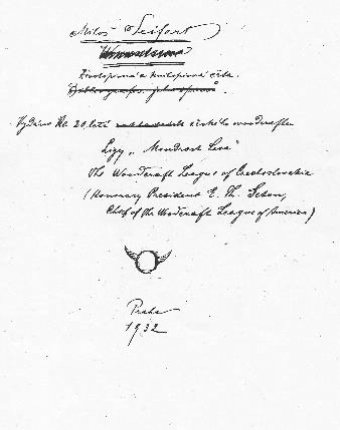 Miloš Seifert
Životopisná a knihopisná črta.
Vydáno ke 20 letí českého woodcraftu
Ligy „Moudrosti Lesa"
The Woodcraft League of Czechoslovakia
(Honorary President E. Th. Seton,
Chief of The Woodcraft League of America)
Praha
1932